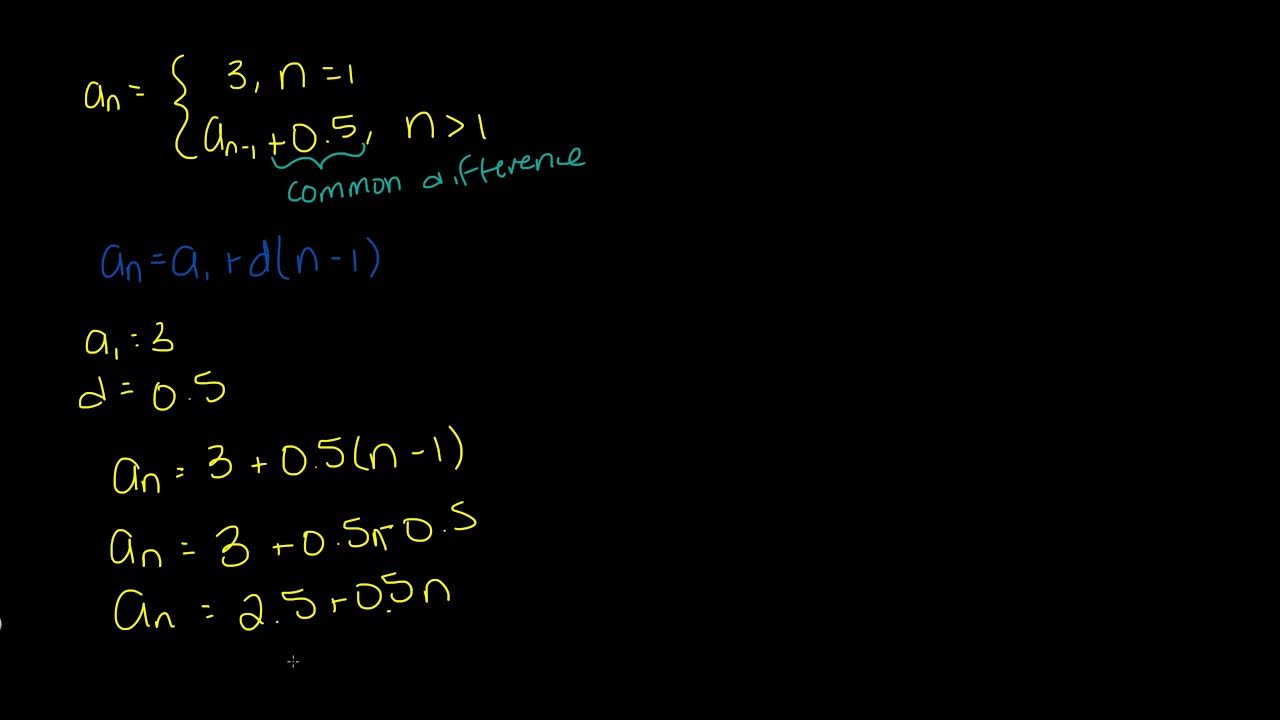 aₙ = { 3, n = 1
aₙ₋₁ + 0.5, n > 1
common difference
aₙ = a₁ + d(n - 1)
a₁ = 3
d = 0.5
aₙ = 3 + 0.5(n - 1)
aₙ = 3 + 0.5n - 0.5
aₙ = 2.5 + 0.5n